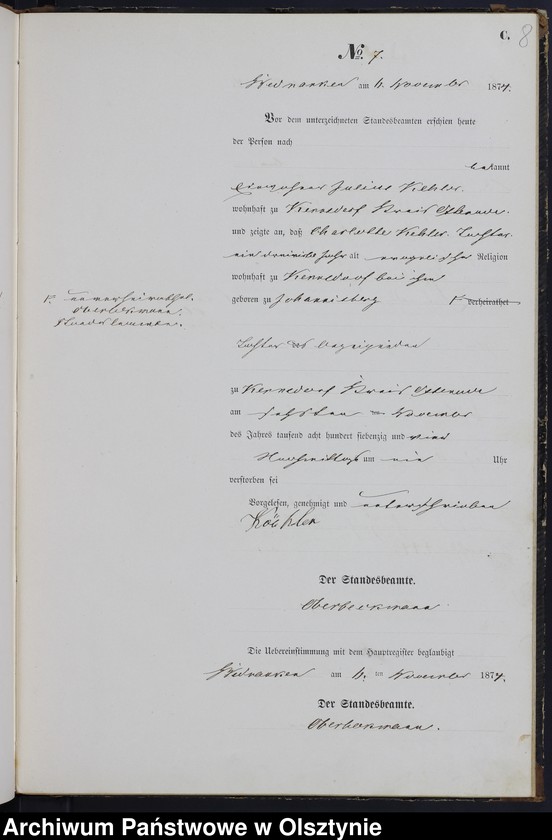 C. 8
No. 7.
am 6. November 1874.
Vor dem unterzeichneten Standesbeamten erschien heute
der Person nach
bekannt
Einwohner Julius Kehler.
wohnhaft zu Kernsdorf Kreis Osterode.
und zeigte an, daß Charlotte Kehler. Tochter.
ein Jahr alt evangelischer Religion
wohnhaft zu Kernsdorf bei ihm
geboren zu Johannisberg verheirathet
unverheirathet.
Oberbeckmann.
Standesbeamte.
Tochter des Anzeigenden
zu Kernsdorf Kreis Osterode
am sechsten November
des Jahres tausend acht hundert siebenzig und vier
Nachmittags um ein Uhr
verstorben sei
Vorgelesen, genehmigt und unterschrieben
Der Standesbeamte.
Oberbeckmann
Die Uebereinstimmung mit dem Hauptregister beglaubigt
am 6. ten November 1874.
Der Standesbeamte.
Oberbeckmann.
Archiwum Państwowe w Olsztynie